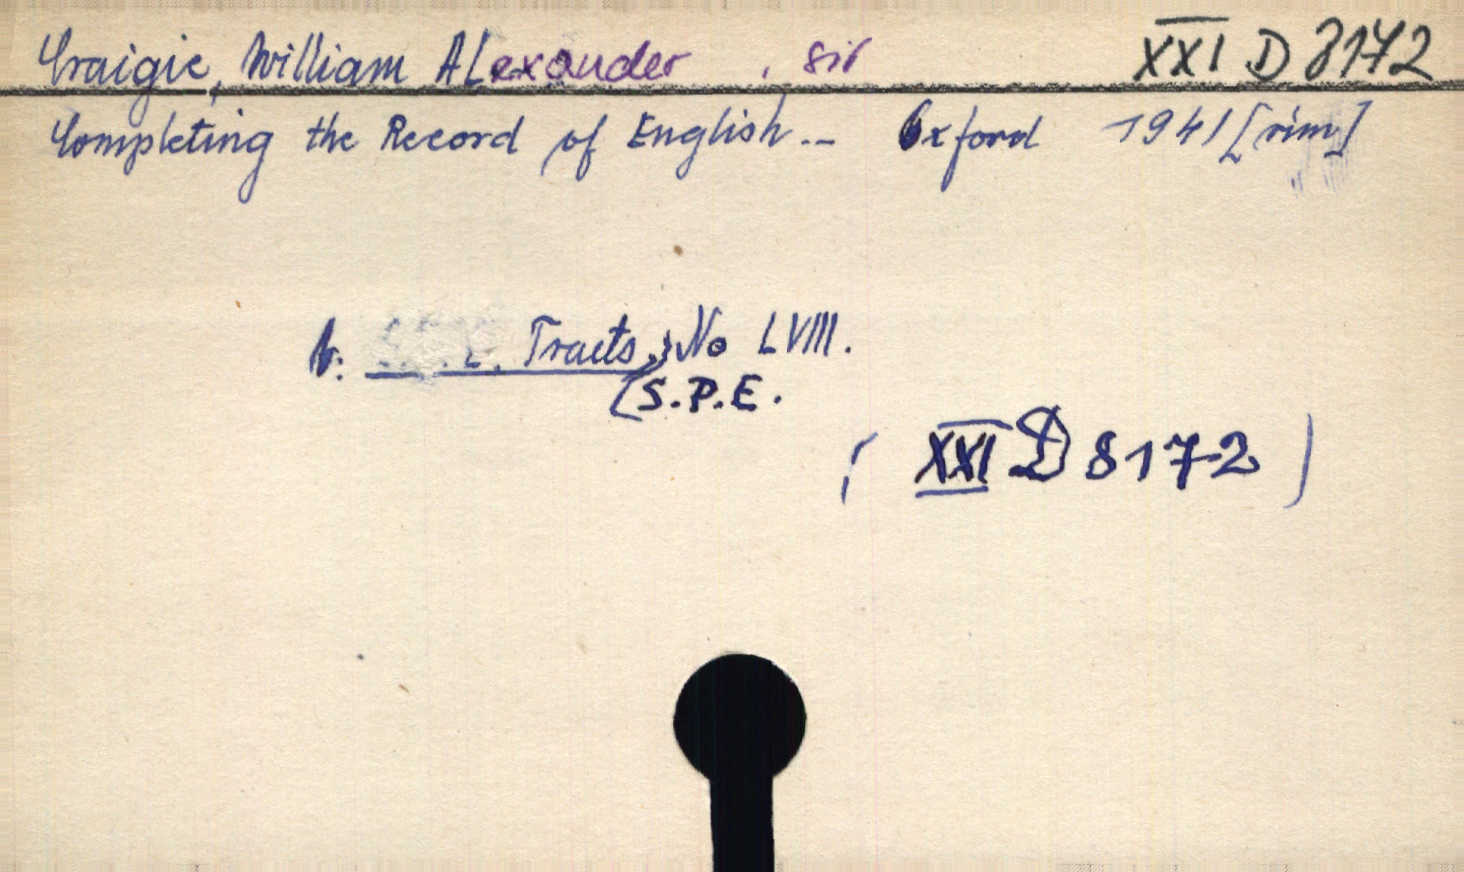 Craigie, William Alexander , Sir XXI D 8172
Completing the Record of English.-- Oxford 1941 [rim]
Tracts, No LVIII.
[S.P.E.
( XXI D 8172 )